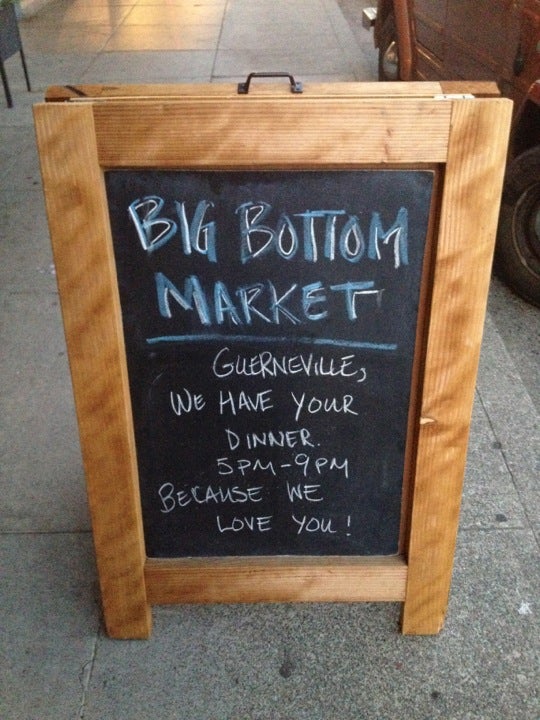 BIG BOTTOM
MARKET
GUERNEVILLE,
WE HAVE YOUR
DINNER.
5PM-9PM
BECAUSE WE
LOVE YOU!